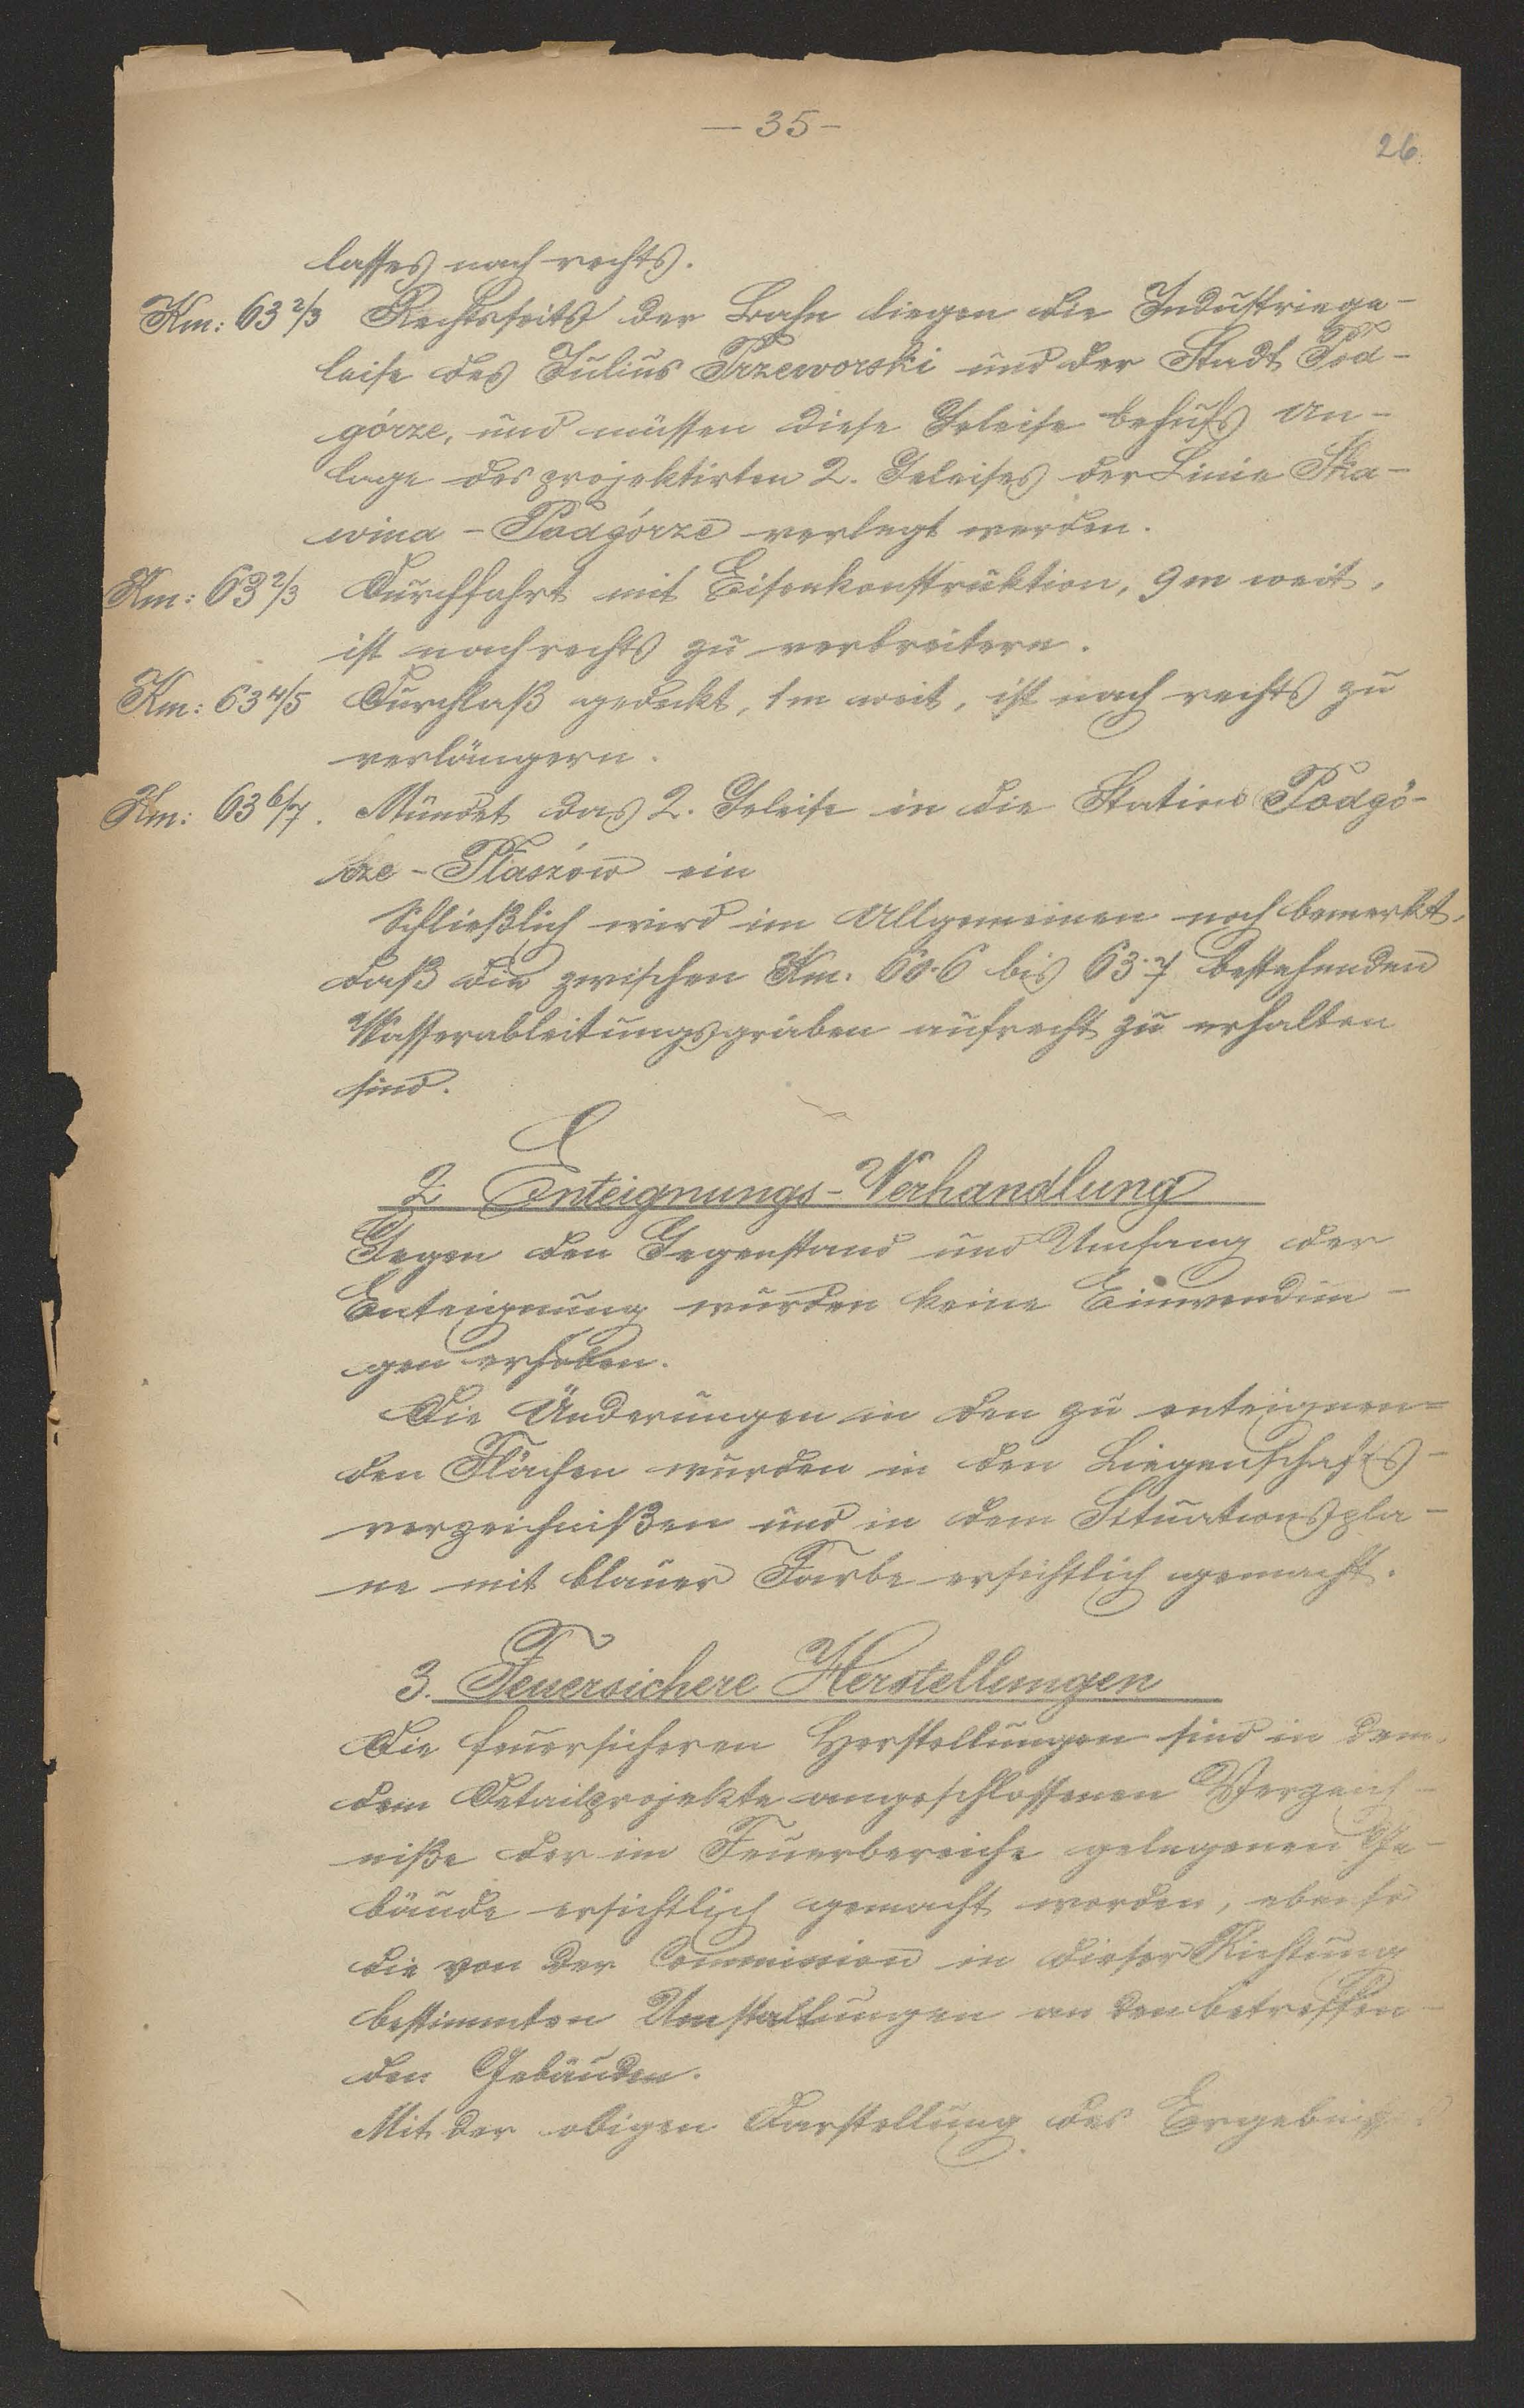 — 35 –
26.
lasses nach rechts.
Km: 63 2/3 Rechtsseits der Bahn liegen die Industriege-
leise des Julius Przeworski und der Stadt Pod-
górze, und müssen diese Geleise behufs An-
lage des projektirten 2. Geleises der Linie Ska-
wina - Podgórze verlegt werden.
Km: 63 2/3 Durchfahrt mit Eisenkonstruktion, 9 m weit,
ist nach rechts zu verbreitern.
Km: 63 4/5 Durchlaß gedeckt, 1 m weit, ist nach rechts zu
verlängern.
Km: 63 6/7. Mündet das 2. Geleise in die Station Podgó-
rze - Płaszów ein
Schließlich wird im Allgemeinen noch bemerkt,
daß die zwischen Km. 60·6 bis 63·7 bestehenden
Wasserableitungsgräben aufrecht zu erhalten
sind.
2 Enteignungs-Verhandlung
Gegen den Gegenstand und Umfang der
Enteignung wurden keine Einwendun-
gen erhoben.
Die Änderungen in den zu enteignen=
den Flächen wurden in den Liegenschafts-
verzeichnißen und in dem Situationspla-
ne mit blauer Farbe ersichtlich gemacht.
3. Feuersichere Herstellungen
Die feuersicheren Herstellungen sind in dem,
dem Detailprojekte angeschlossenen Verzeich-
niße der im Feuerbereiche gelegenen Ge-
bäude ersichtlich gemacht worden, ebenso
die von der Commission in dieser Richtung
bestimmten Umstaltungen an den betreffen-
den Gebäuden.
Mit der obigen Darstellung des